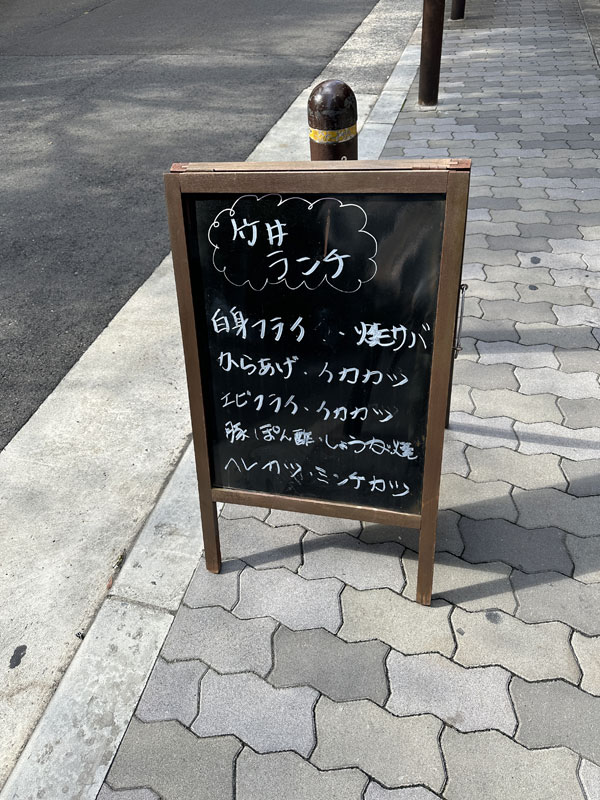 竹井
ランチ
白身フライ・焼サバ
からあげ・イカカツ
エビフライ・イカカツ
豚ぽん酢・しょうが焼
ヘレカツ・ミンチカツ